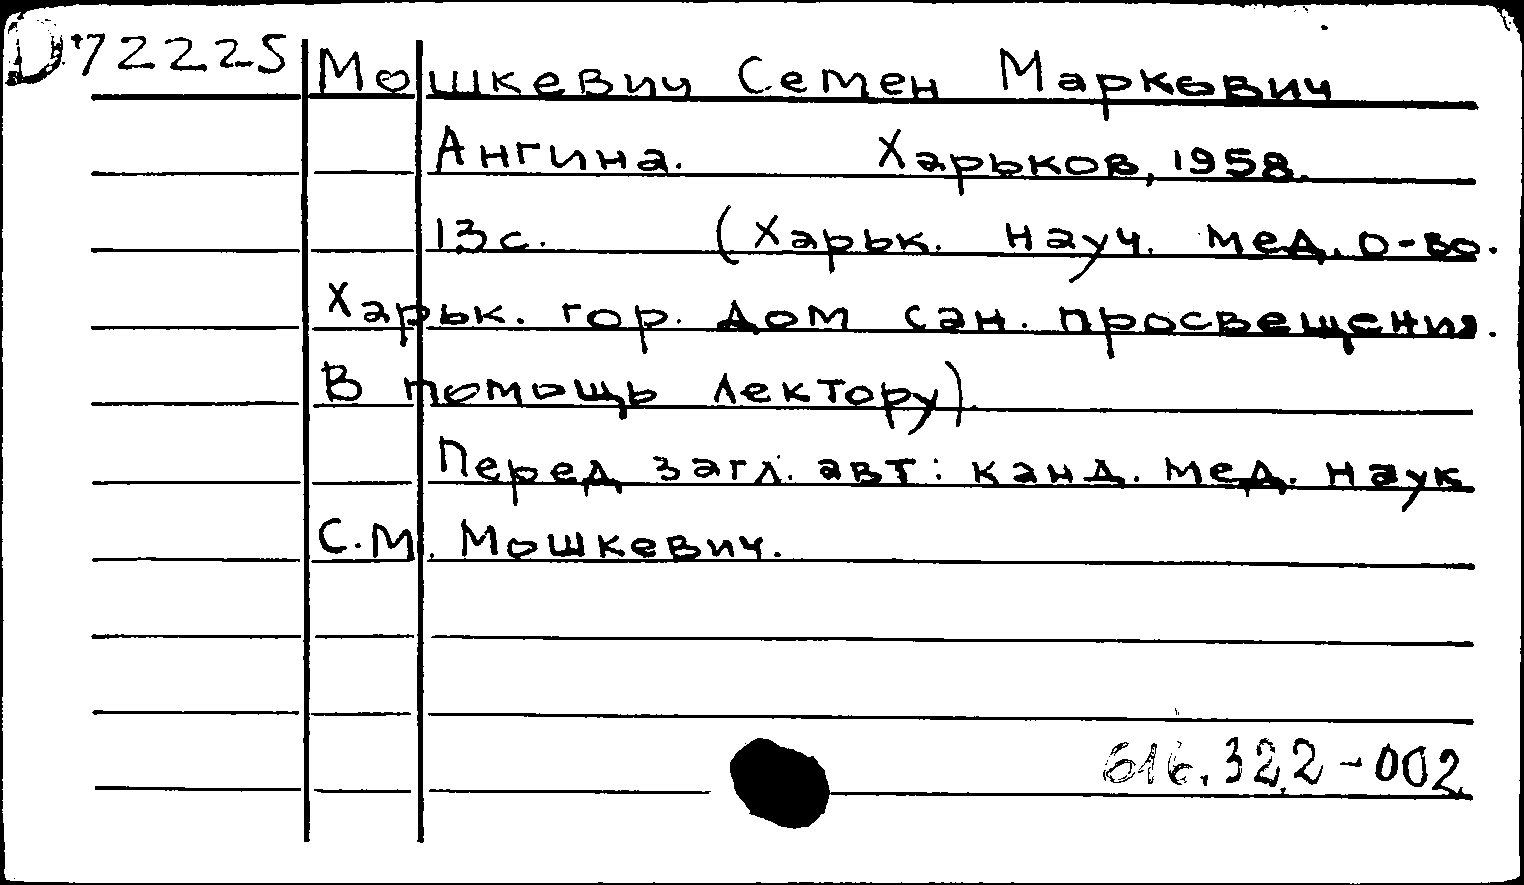 D72225 Мошкевич Семен Маркович
Ангина. Харьков, 1958.
13 с. (Харьк. науч. мед. о-во.
Харьк. гор. дом сан. просвещения.
В помощь лектору)
Перед загл. авт: канд. мед. наук
С.М. Мошкевич.
616.322-002